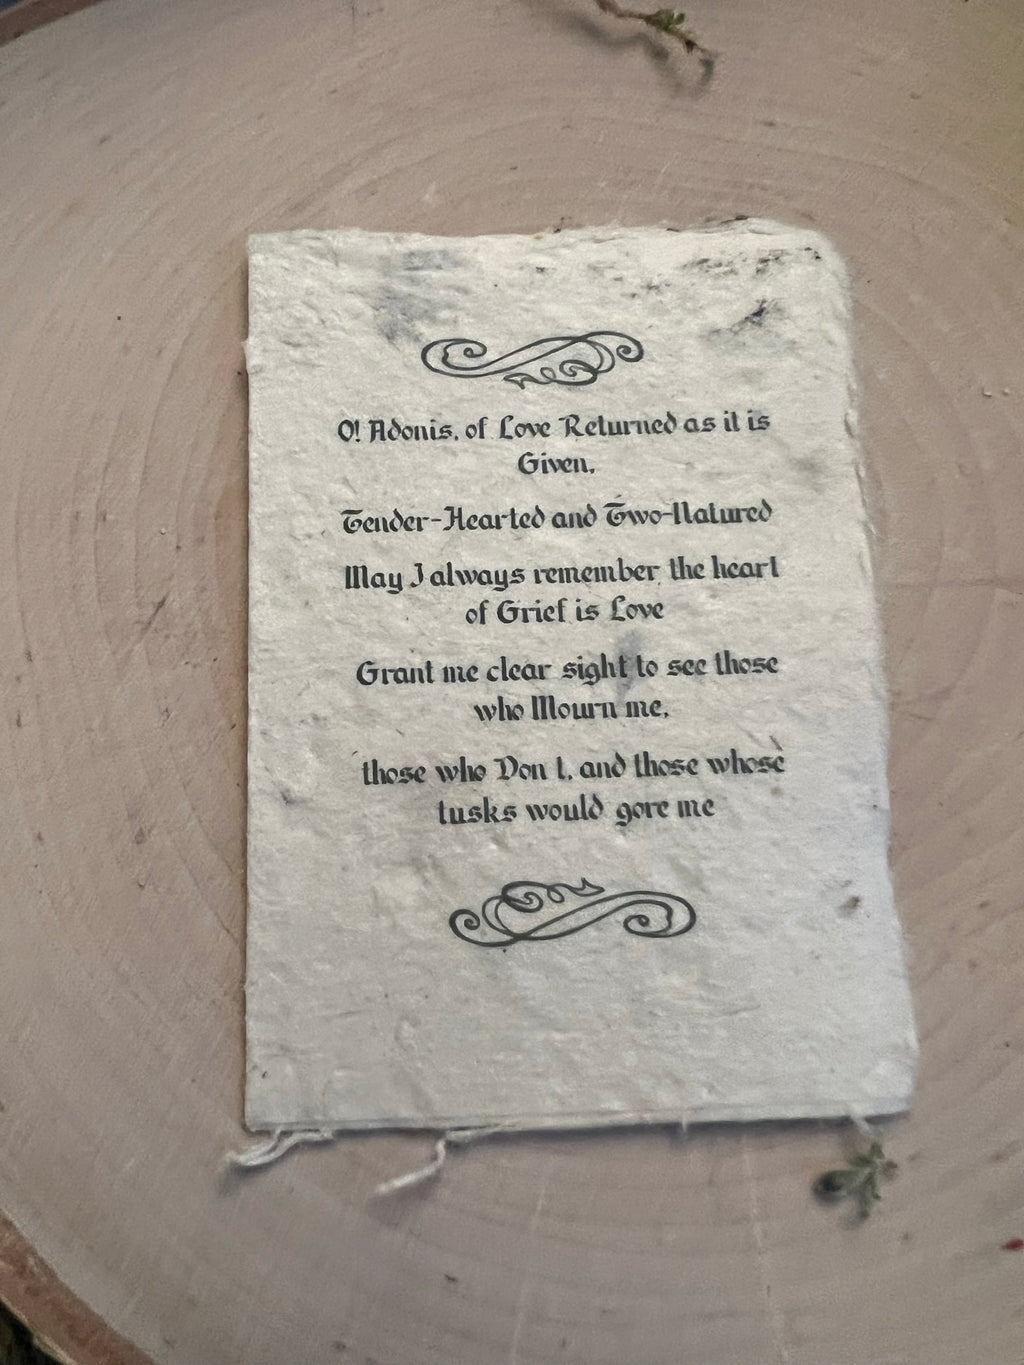 O! Adonis, of Love Returned as it is
Given,
Tender-Hearted and Two-Natured
May I always remember the heart
of Grief is Love
Grant me clear sight to see those
who Mourn me,
those who Don t, and those whose
tusks would gore me